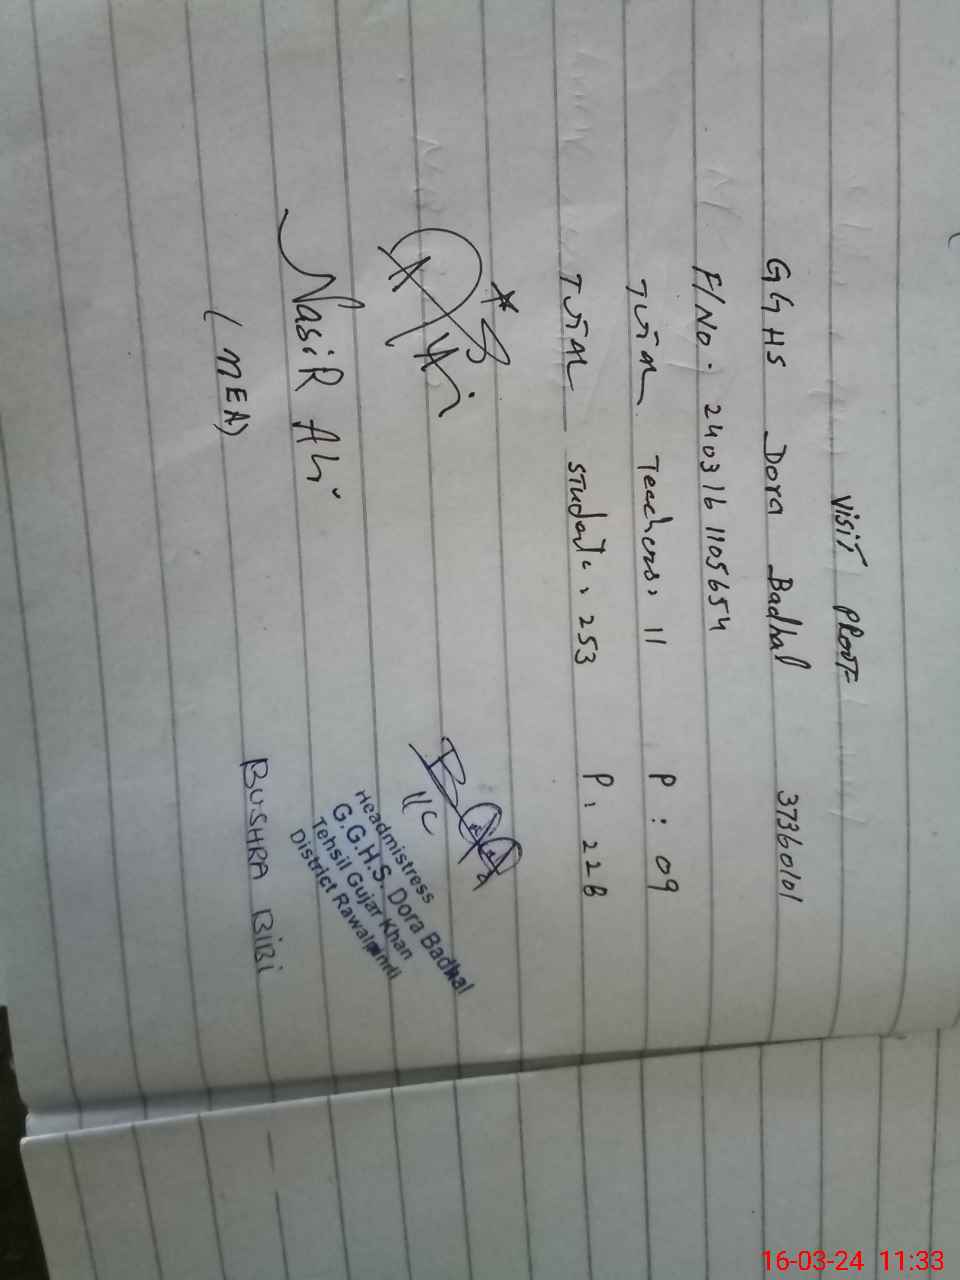 VISIT PROOF
GGHS Dora Badhal 37360101
F/No. 240316 1105654
Total Teachers: 11 P: 09
Total Students: 253 P: 228
NasiR Ali
(MEA)
11c
Headmistress
G.G.H.S. Dora Badhal
Tehsil Gujar Khan
District Rawalpindi
BUSHRA BiBi
16-03-24 11:33